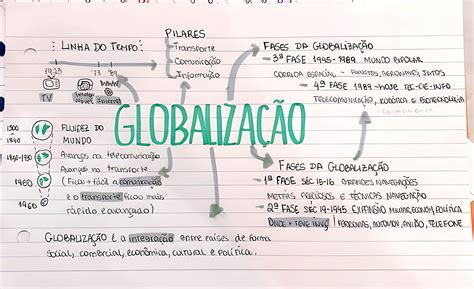 PILARES
Transporte
Comunicação
Informação
LINHA DO TEMPO:
1923 73' 89'
TV
FASES DA GLOBALIZAÇÃO
- 3ª FASE 1945-1989 MUNDO BIPOLAR
CORRIDA ESPACIAL - FOGUETES, AERONAVES, SATES
- 4ª FASE 1989-HOJE TEC-CIE-INFO
TELECOMUNICAÇÃO, ROBÓTICA E BIOTECNOLOGIA
GLOBALIZAÇÃO
1500
- 1840
1850-1930
1950
1960
FLUIDEZ DO
MUNDO
Avanços na telecomunicação
Avanços no transporte
(Ficou + fácil a comunicação
e o transporte ficou mais
rápido e avançado)
FASES DA GLOBALIZAÇÃO
- 1ª FASE SÉC 15-16 GRANDES NAVEGAÇÕES
METAIS PRECIOSOS E TÉCNICAS NAVEGAÇÃO
- 2ª FASE SÉC 19-1945 EXPANSÃO MILITAR, ECONOM, POLÍTICA
ONDE + TEVE INVÇ! FERROVIAS, AUTOMÓV, AVIÃO, TELEFONE
GLOBALIZAÇÃO É a integração entre países de forma
social, comercial, econômica, cultural e política.